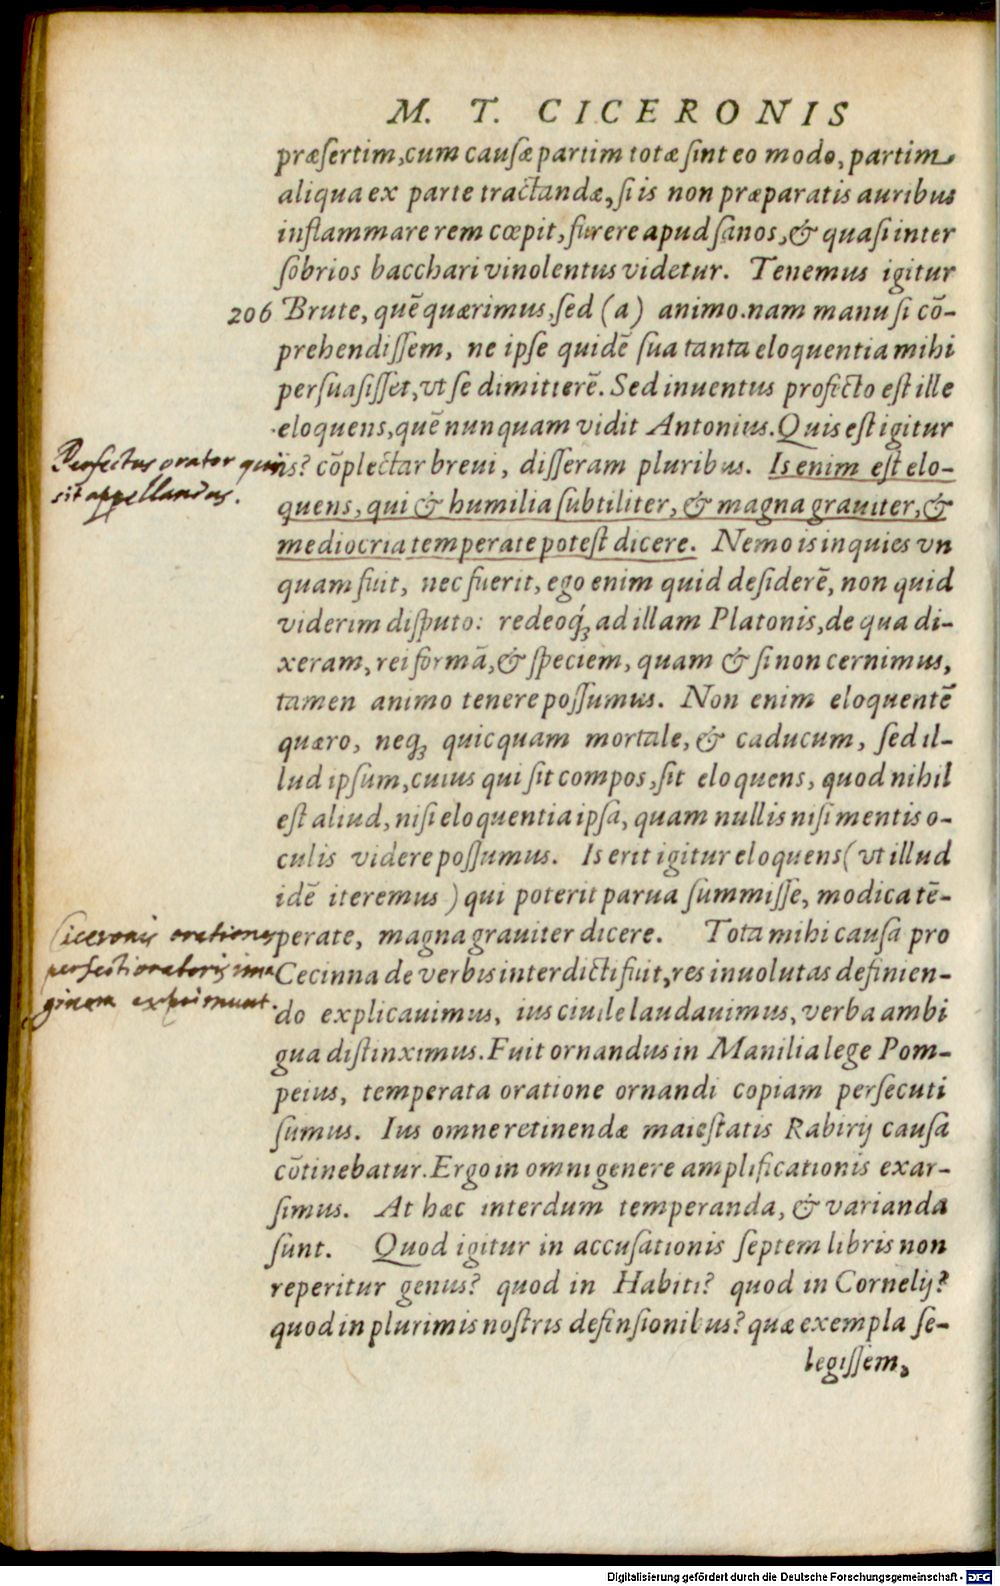 M. T. CICERONIS
præſertim, cum cauſæ partim totæ ſint eo modo, partim
aliqua ex parte tractandæ, ſi is non præparatis auribus
inflammare rem cœpit, furere apud ſanos, & quaſi inter
ſobrios bacchari vinolentus videtur. Tenemus igitur
206 Brute, quē quærimus, ſed (a) animo. nam manu ſi cō-
prehendiſſem, ne ipſe quidē ſua tanta eloquentia mihi
perſuaſiſſet, vt ſe dimitterē. Sed inuentus profecto eſt ille
eloquens, quē nunquam vidit Antonius. Quis eſt igitur
Perfectus orator quis
sit appellandus.
is? cōplectar breui, diſſeram pluribus. Is enim eſt elo-
quens, qui & humilia ſubtiliter, & magna grauiter, &
mediocria temperate poteſt dicere. Nemo is inquies vn
quam fuit, nec fuerit, ego enim quid deſiderē, non quid
viderim diſputo: redeoq́; ad illam Platonis, de qua di-
xeram, rei formā, & ſpeciem, quam & ſi non cernimus,
tamen animo tenere poſſumus. Non enim eloquentē
quæro, neq; quicquam mortale, & caducum, ſed il-
lud ipſum, cuius qui ſit compos, ſit eloquens, quod nihil
eſt aliud, niſi eloquentia ipſa, quam nullis niſi mentis o-
culis videre poſſumus. Is erit igitur eloquens (vt illud
idē iteremus) qui poterit parua ſummiſſe, modica tē-
Ciceronis orationes
perfecti oratoris ima
ginem exprimunt.
perate, magna grauiter dicere. Tota mihi cauſa pro
Cecinna de verbis interdicti fuit, res inuolutas definien-
do explicauimus, ius ciuile laudauimus, verba ambi
gua diſtinximus. Fuit ornandus in Manilia lege Pom-
peius, temperata oratione ornandi copiam perſecuti
ſumus. Ius omne retinendæ maieſtatis Rabirij cauſa
cōtinebatur. Ergo in omni genere amplificationis exar-
ſimus. At hæc interdum temperanda, & varianda
ſunt. Quod igitur in accuſationis ſeptem libris non
reperitur genus? quod in Habiti? quod in Cornelij?
quod in plurimis noſtris defenſionibus? quæ exempla ſe-
legiſſem,
Digitalisierung gefördert durch die Deutsche Forschungsgemeinschaft - DFG